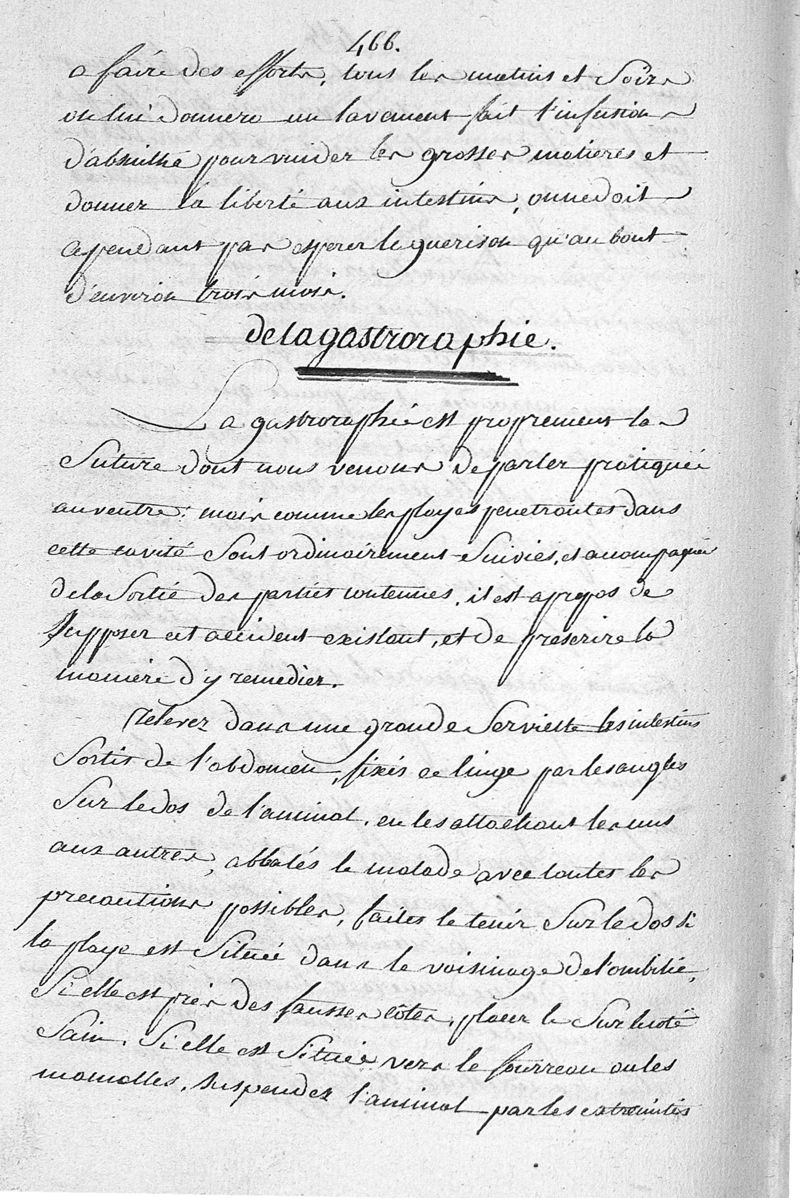 466.
a faire des efforts, tous les matins et Soirs
on lui donnera un lavement fait l'infusion
d'absinthe pour vuider les grosses matieres et
donner la liberté aux intestins, on ne doit
cependant pas esperer la guerison qu'au bout
d'environ trois mois.
de la gastroraphie.
La gastroraphie est proprement la
Suture dont nous venons de parler pratiquée
au ventre: mais comme les playes penetrantes dans
cette cavité Sont ordinairement Suivies, et accompagnées
de la Sortie des parties contenues, il est a propos de
Supposer cet accident existant, et de prescrire la
maniere d'y remedier.
Relevez dans une grande Serviette les intestins
Sortis de l'abdomen, fixés ce linge par les angles
Sur le dos de l'animal, en les attachant les uns
aux autres, abbatés le malade avec toutes les
precautions possibles, faites le tenir Sur le dos Si
la playe est Située dans le voisinage de l'ombilic,
Si elle est près des fausses côtes, placez le Sur le coté
Sain. Si elle est Située vers le fourreau ou les
mamelles, Suspendez l'animal par les extremités